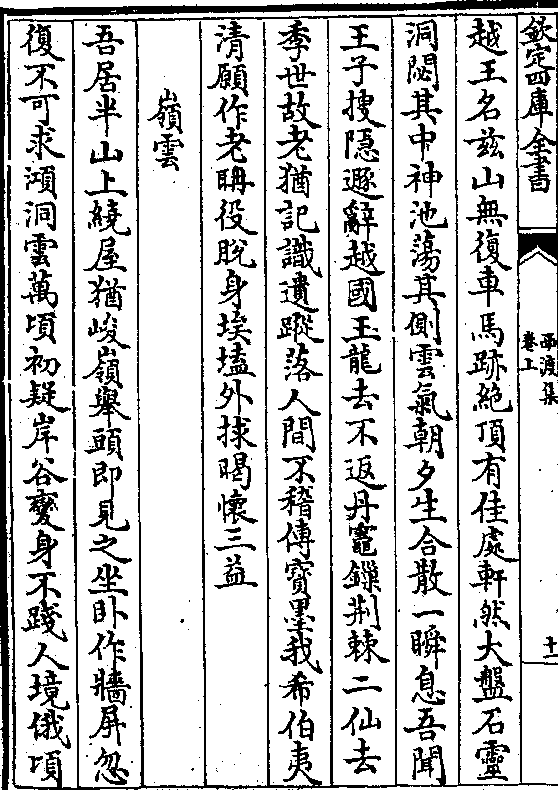 欽定四庫全書
西渡集
卷上
十一
越王名兹山無復車馬跡絶頂有佳處軒然大盤石靈
洞閟其中神池蕩其側雲氣朝夕生合散一瞬息吾聞
王子搜隠遯辭越國王龍去不返丹竈鏁荆棘二仙去
季世故老猶記識遺蹤落人間不稽傳寳墨我希伯夷
清願作老聃役脫身埃壒外捄暍懐三益
嶺雲
吾居半山上繞屋猶峻嶺舉頭即見之坐卧作牆屏忽
復不可求澒洞雲萬頃初疑岸谷變身不踐人境俄頃